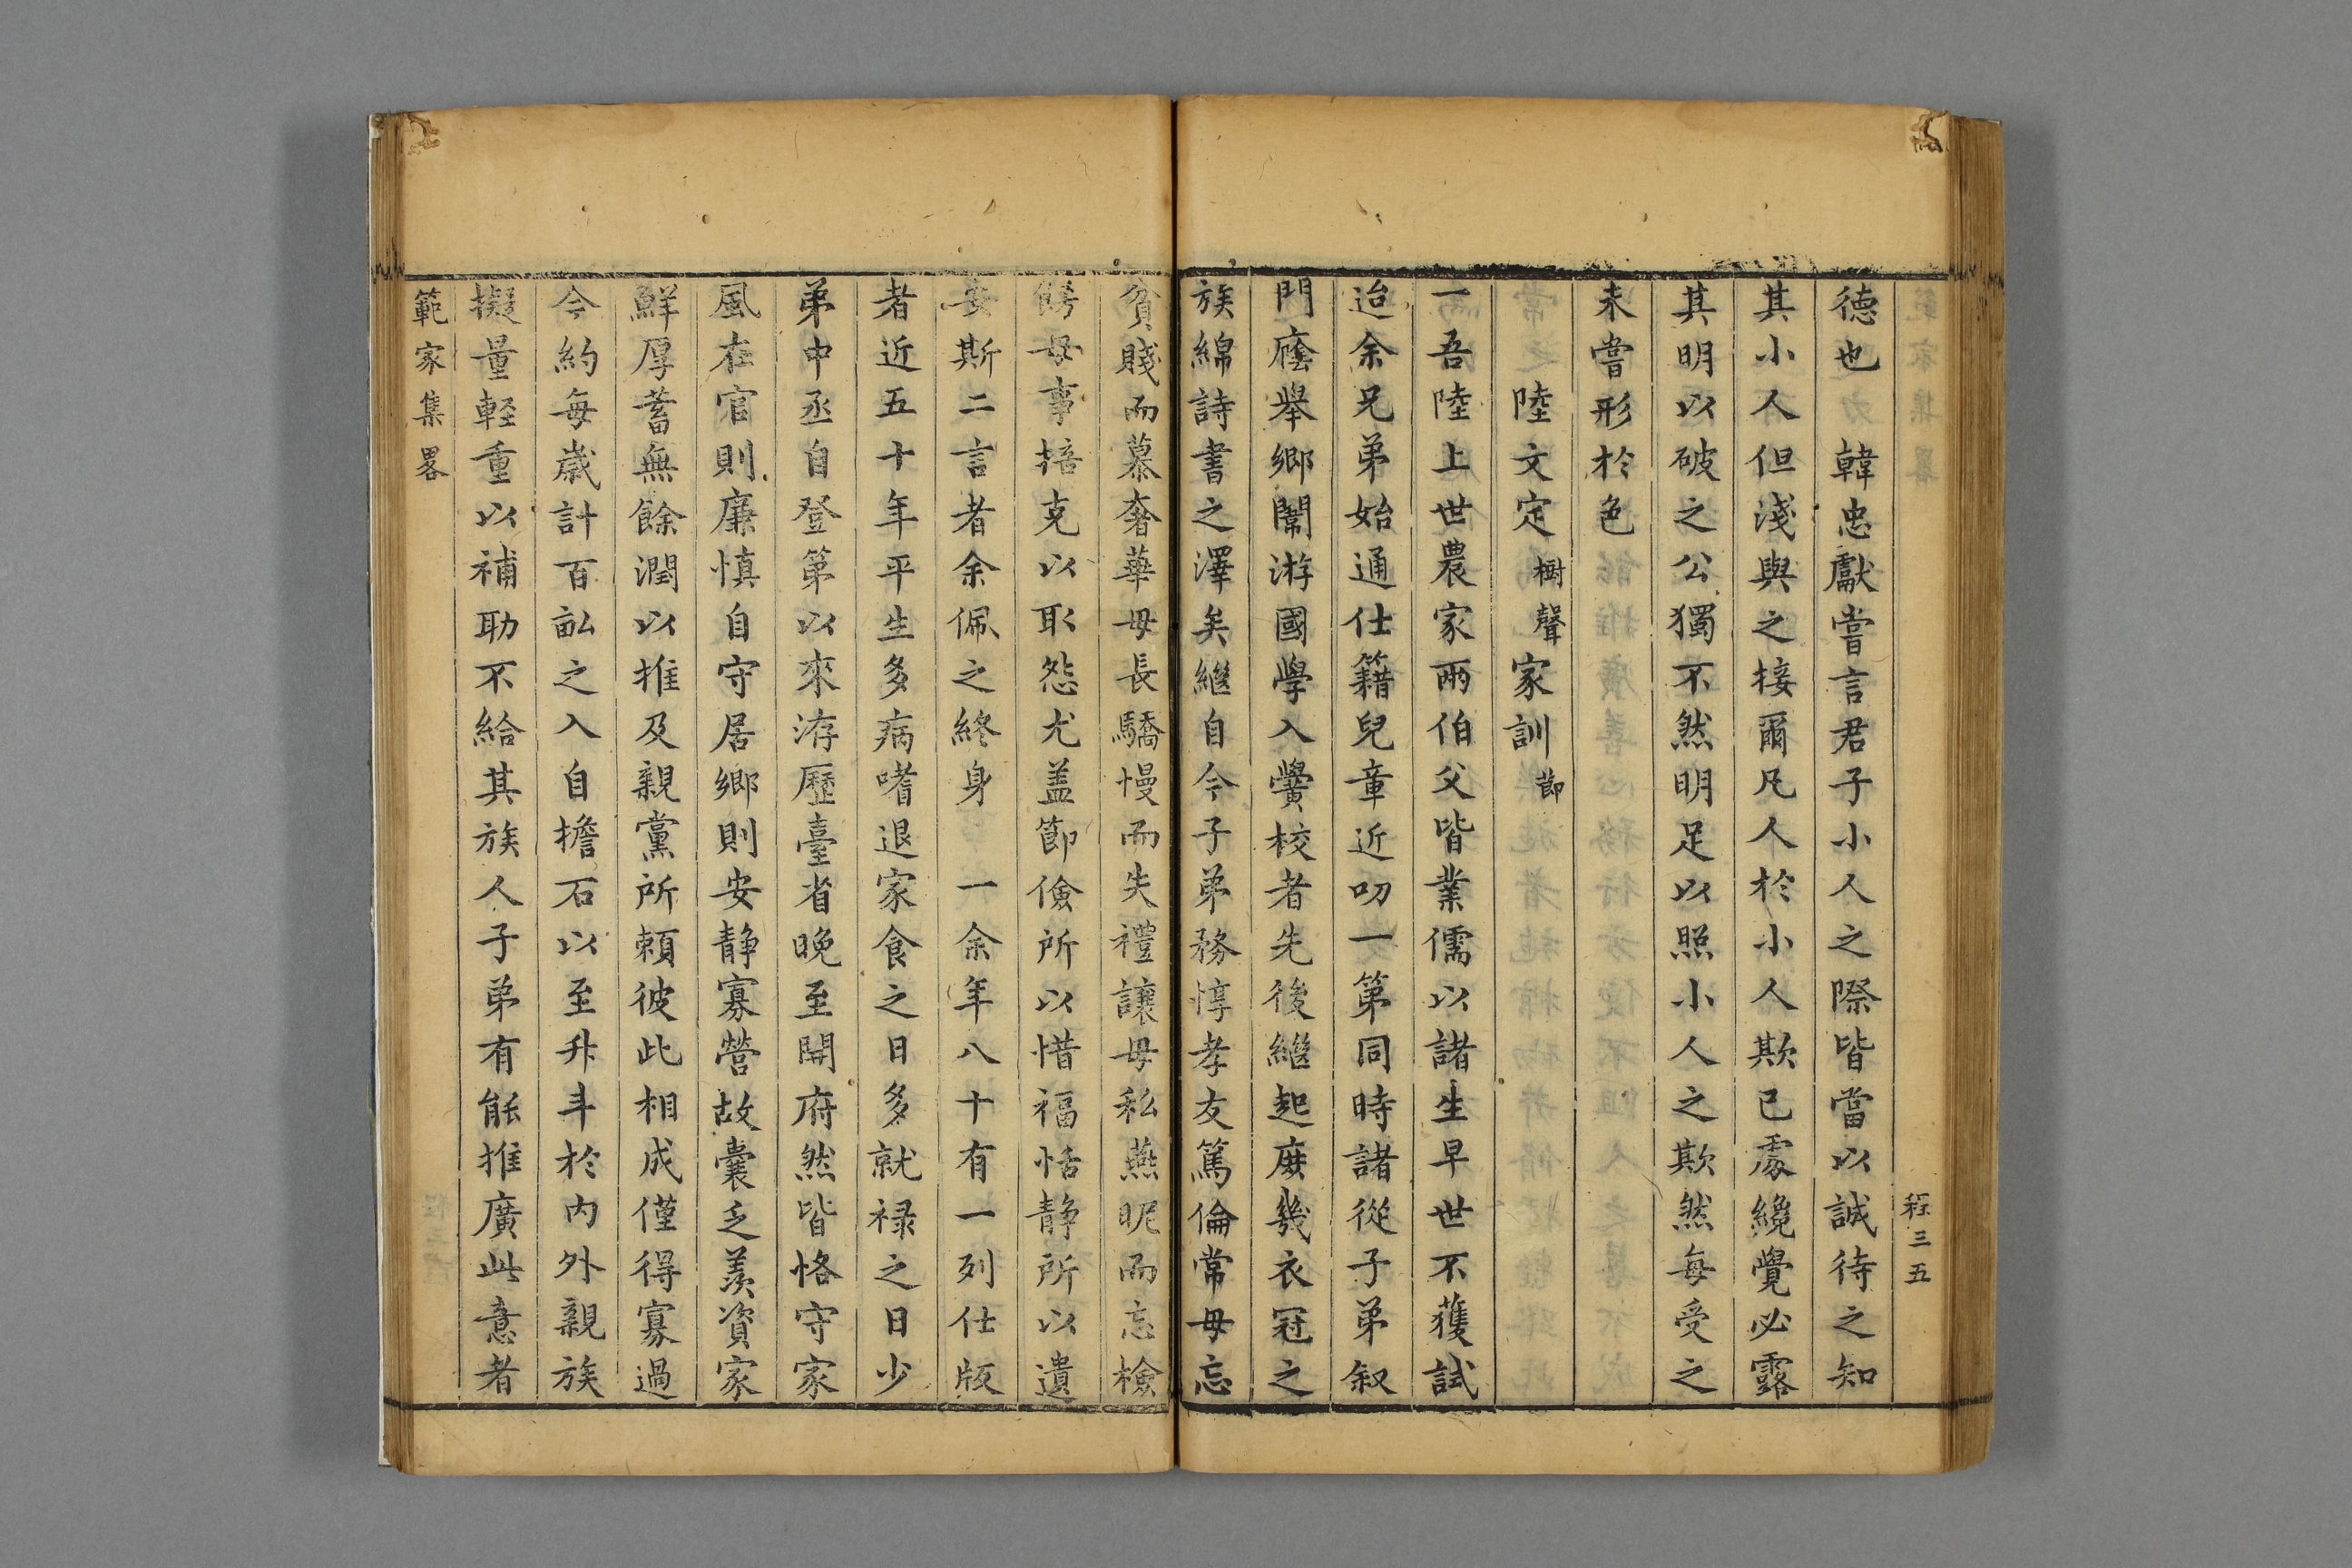 程三五
德也　韓忠獻嘗言君子小人之際皆當以誠待之知
其小人但淺與之接爾凡人於小人欺已處纔覺必露
其明以破之公獨不然明足以照小人之欺然每受之
未嘗形於色
陸文定樹聲家訓節
一吾陸上世農家兩伯父皆業儒以諸生早世不獲試
迨余兄弟始通仕籍兒章近叨一第同時諸從子弟叙
門廕舉鄉闈游國學入黌校者先後繼起庶幾衣冠之
族綿詩書之澤矣繼自今子弟務惇孝友篤倫常毋忘
貧賤而慕奢華毋長驕慢而失禮讓毋私燕昵而忘檢
飭毋事掊克以取怨尤盖節儉所以惜福恬静所以遺
安斯二言者余佩之終身　一余年八十有一列仕版
者近五十年平生多病嗜退家食之日多就禄之日少
弟中丞自登第以來洊歷臺省晚至開府然皆恪守家
風在官則廉慎自守居鄉則安静寡營故囊乏羨資家
鮮厚蓄無餘潤以推及親黨所頼彼此相成僅得寡過
今約每歲計百畆之入自擔石以至升斗於内外親族
擬量軽重以補助不給其族人子弟有能推廣此意者
範家集畧